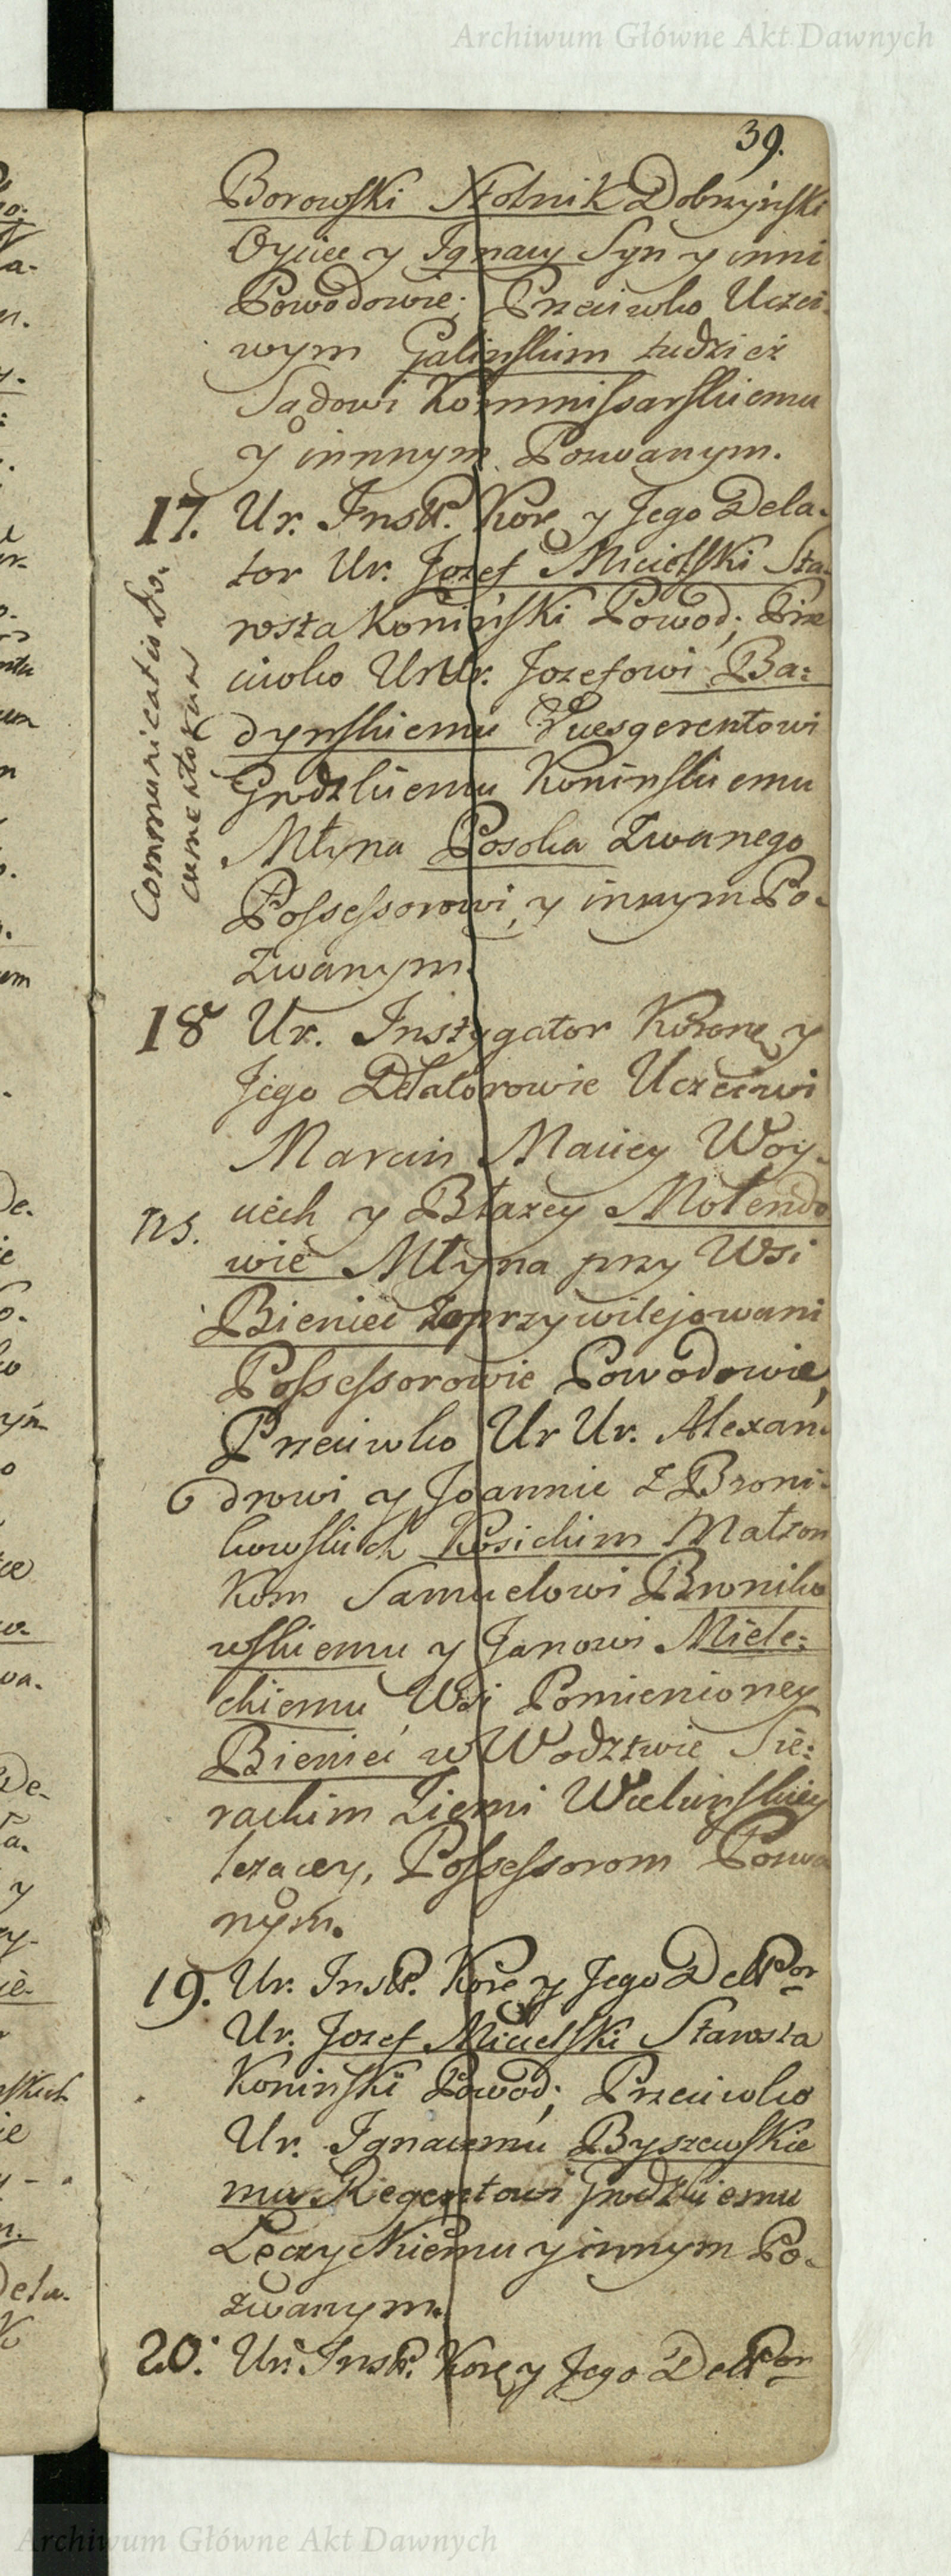 Archiwum Główne Akt Dawnych
39.
Borowski Stolnik Dobrzyński
Oyciec y Ignacy Syn y inni
Powodowie; Przeciwko Uczci-
wym Galinskim tudzież
Sądowi Kommissarskiemu
y innnym Pozwanym.
17. Ur. Inst. Kor. y Jego Dela-
tor Ur. Jozef Micielski Sta-
rosta Koniński Powod; Prze
ciwko UrUr. Jozefowi Ba:
dynskiemu Vicesgerentowi
Grodzkiemu Koninskiemu
Młyna Posoka Zwanego
Possessorowi, y innym Po-
zwanym.
Communicatio Do-
cumentorum
18 Ur. Instygator Koronę y
Jego Delatorowie Uczciwi
Marcin Maciey Woy-
ciech y Błazey Molendo
ns.
wie Młyna przy Wsi
Bieniec zaprzywilejowani
Possessorowie Powodowie,
Przeciwko Ur Ur. Alexan-
drowi y Joannie z Broni-
kowskich Kosickim Małzon
kom Samuelowi Broniko
wskiemu y Janowi Miele:
ckiemu Wsi Pomienioney
Bieniec w Wodztwie Sie:
rackim Ziemi Wielunskiey
lezącey, Possessorom Pozwa
nym.
19. Ur. Inst. Kore y Jego Delator
Ur. Jozef Micielski Starosta
Koninski Powod; Przeciwko
Ur. Ignacemu Byszewskie
mu Regentowi Grodzkiemu
Łęczyckiemu y innym Po-
zwanym.
20. Ur. Inst. Kore y Jego Delator
Archiwum Główne Akt Dawnych